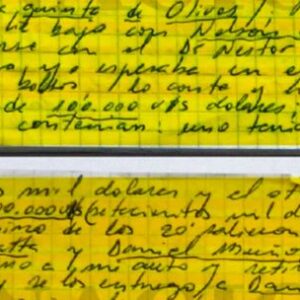 quinta de Olivos
bajo con Nelson
con el Dr Nestor
y esperaba en e
bolsos lo conto y
de 100.000 U$S dolares
contenian: uno tenia
mil dolares y el ot
00.000 U$S (setecientos mil d
de los 20 palieron
y Daniel Muño
a mi auto y retir
y se los entrego a Dan